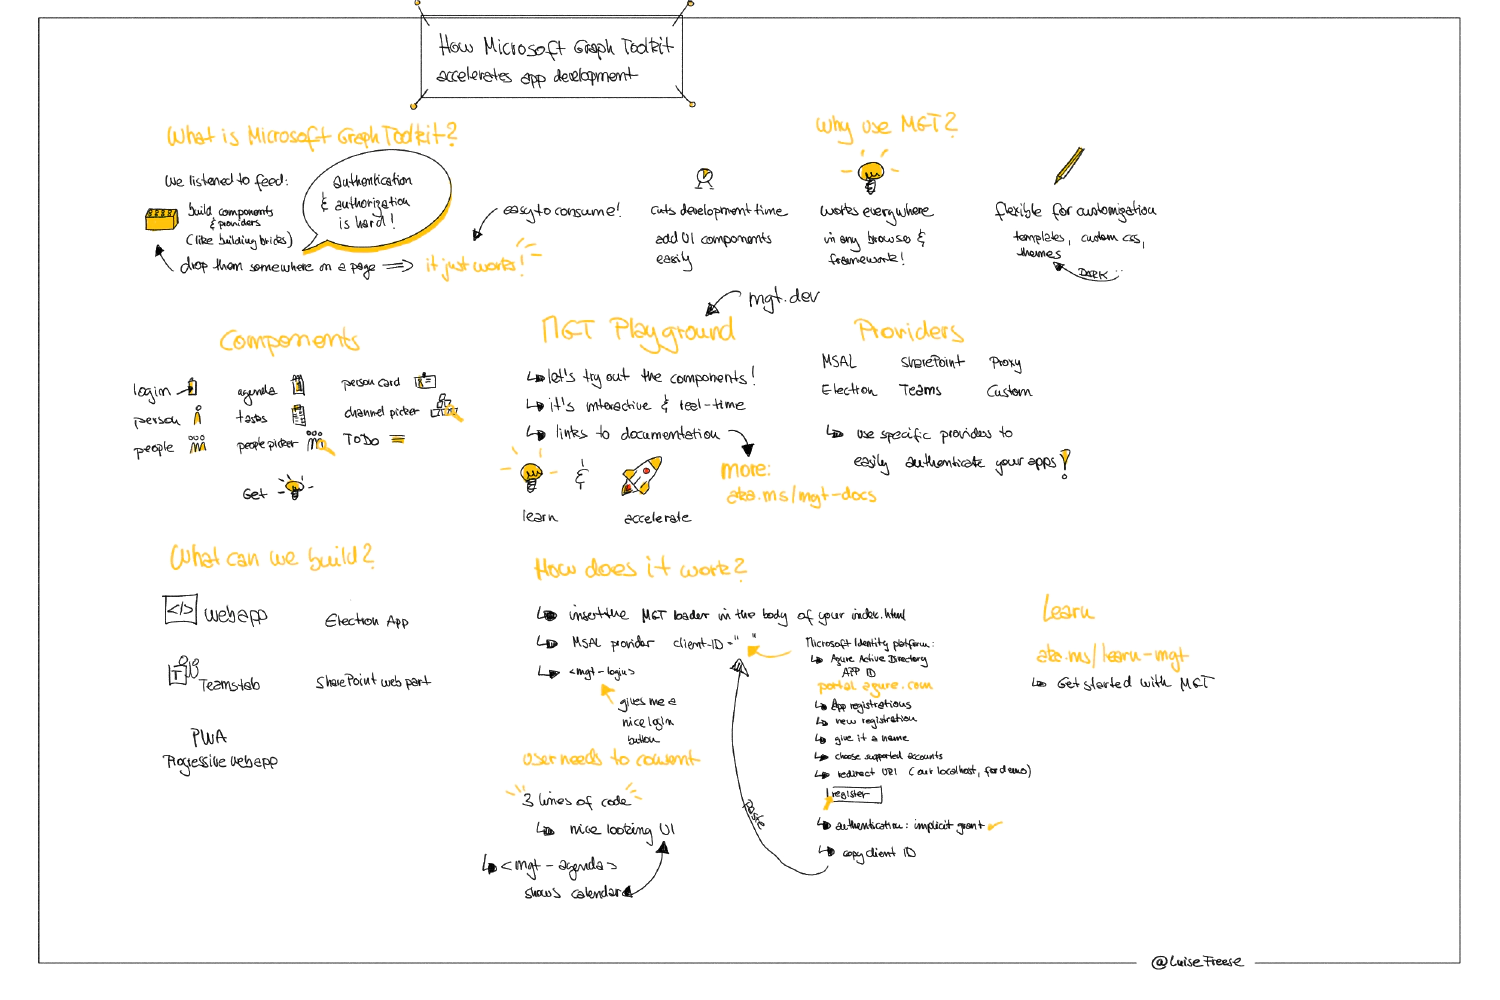 How Microsoft Graph Toolkit
accelerates app development
What is Microsoft Graph Toolkit?
We listened to feed:
authentication
& authorization
is hard!
build components
& providers
(like building bricks)
drop them somewhere on a page => it just works!
easy to consume!
Why use MGT?
cuts development time
add UI components
easily
works everywhere
in any browse &
framework!
flexible for customization
templates, custom css,
themes
DARK
Components
login
person
people
agenda
tasks
people picker
person card
channel picker
ToDo
Get
mgt.dev
MGT Playground
let's try out the components!
it's interactive & real-time
links to documentation
learn
&
accelerate
more:
aka.ms/mgt-docs
Providers
MSAL SharePoint Proxy
Election Teams Custom
use specific providers to
easily authenticate your apps!
What can we build?
</> webapp
Election App
T Teamstab
SharePoint web part
PWA
Progressive webapp
How does it work?
insert the MGT loader in the body of your index.html
MSAL provider client-ID = " "
<mgt-login>
gives me a
nice login
button
user needs to consent
3 lines of code
nice looking UI
<mgt-agenda>
shows calendar
paste
Microsoft Identity platform:
Azure Active Directory
APP ID
portal.azure.com
App registrations
new registration
give it a name
choose supported accounts
redirect URI (our localhost, for demo)
register
authentication: implicit grant
copy client ID
Learn
aka.ms/learn-mgt
Get started with MGT
@LuiseFreese